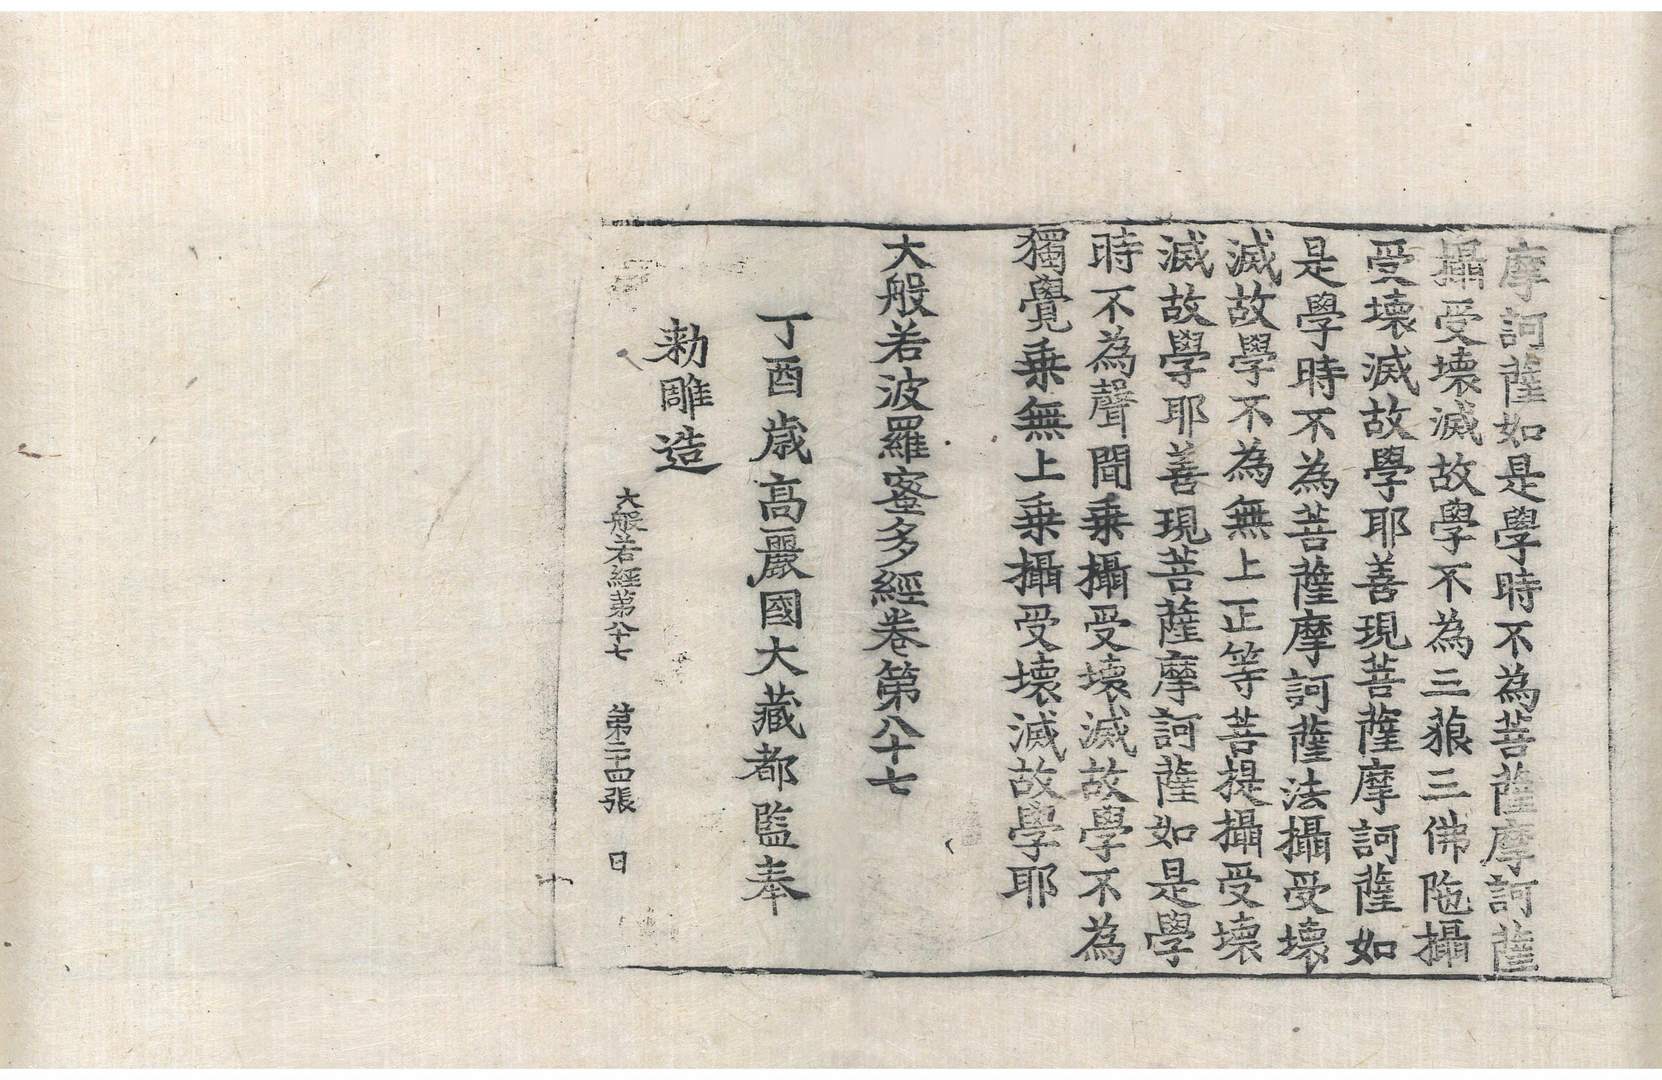 摩訶薩如是學時不為菩薩摩訶薩
攝受壞滅故學不為三藐三佛陁攝
受壞滅故學耶善現菩薩摩訶薩如
是學時不為菩薩摩訶薩法攝受壞
滅故學不為無上正等菩提攝受壞
滅故學耶善現菩薩摩訶薩如是學
時不為聲聞乗攝受壞滅故學不為
獨覺乗無上乗攝受壞滅故學耶
大般若波羅蜜多經卷第八十七
丁酉歲高麗國大藏都監奉
勑雕造
大般若經第八十七 第二十四張 日